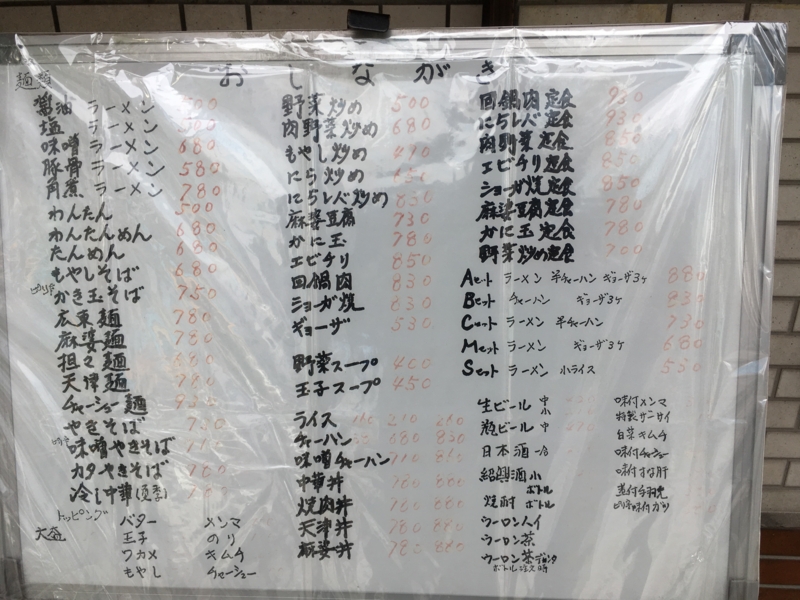 おしながき
麺類
醤油ラーメン 500
塩ラーメン 500
味噌ラーメン 680
豚骨ラーメン 580
角煮ラーメン 780
わんたん 500
わんたんめん 680
たんめん 680
もやしそば 680
かき玉そば 750
広東麺 780
麻婆麺 780
担々麺 680
天津麺 780
チャーシュー麺 930
やきそば 730
味噌やきそば
カタやきそば
冷し中華(夏季)
トッピング
大盛
バター メンマ
玉子 のり
ワカメ キムチ
もやし チャーシュー
野菜炒め 500
肉野菜炒め 680
もやし炒め 490
にら炒め
にらレバ炒め 830
麻婆豆腐 730
かに玉 780
エビチリ 850
回鍋肉 830
ショーガ焼 830
ギョーザ 530
野菜スープ 400
玉子スープ 450
ライス 160 210 260
チャーハン 680 830
味噌チャーハン
中華丼 780 880
焼肉丼 780 880
天津丼 780 880
麻婆丼 780 880
回鍋肉定食 930
にらレバ定食 930
肉野菜定食 850
エビチリ定食 850
ショーガ焼定食 850
麻婆豆腐定食 780
かに玉定食 780
野菜炒め定食 700
Aセット ラーメン 半チャーハン ギョーザ3ケ 880
Bセット チャーハン ギョーザ3ケ 830
Cセット ラーメン 半チャーハン 730
Mセット ラーメン ギョーザ3ケ 680
Sセット ラーメン 小ライス 550
生ビール 中
小
瓶ビール 中
日本酒 一合
紹興酒 小
ボトル
焼酎 ボトル
ウーロンハイ
ウーロン茶
ウーロン茶デカンタ
ボトル注文時
味付メンマ
特製ザーサイ
白菜キムチ
味付チャーシュー
味付すな肝
煮付手羽先